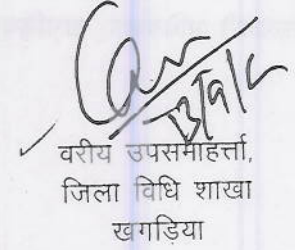 वरीय उपसमाहर्त्ता,
जिला विधि शाखा
खगडिया